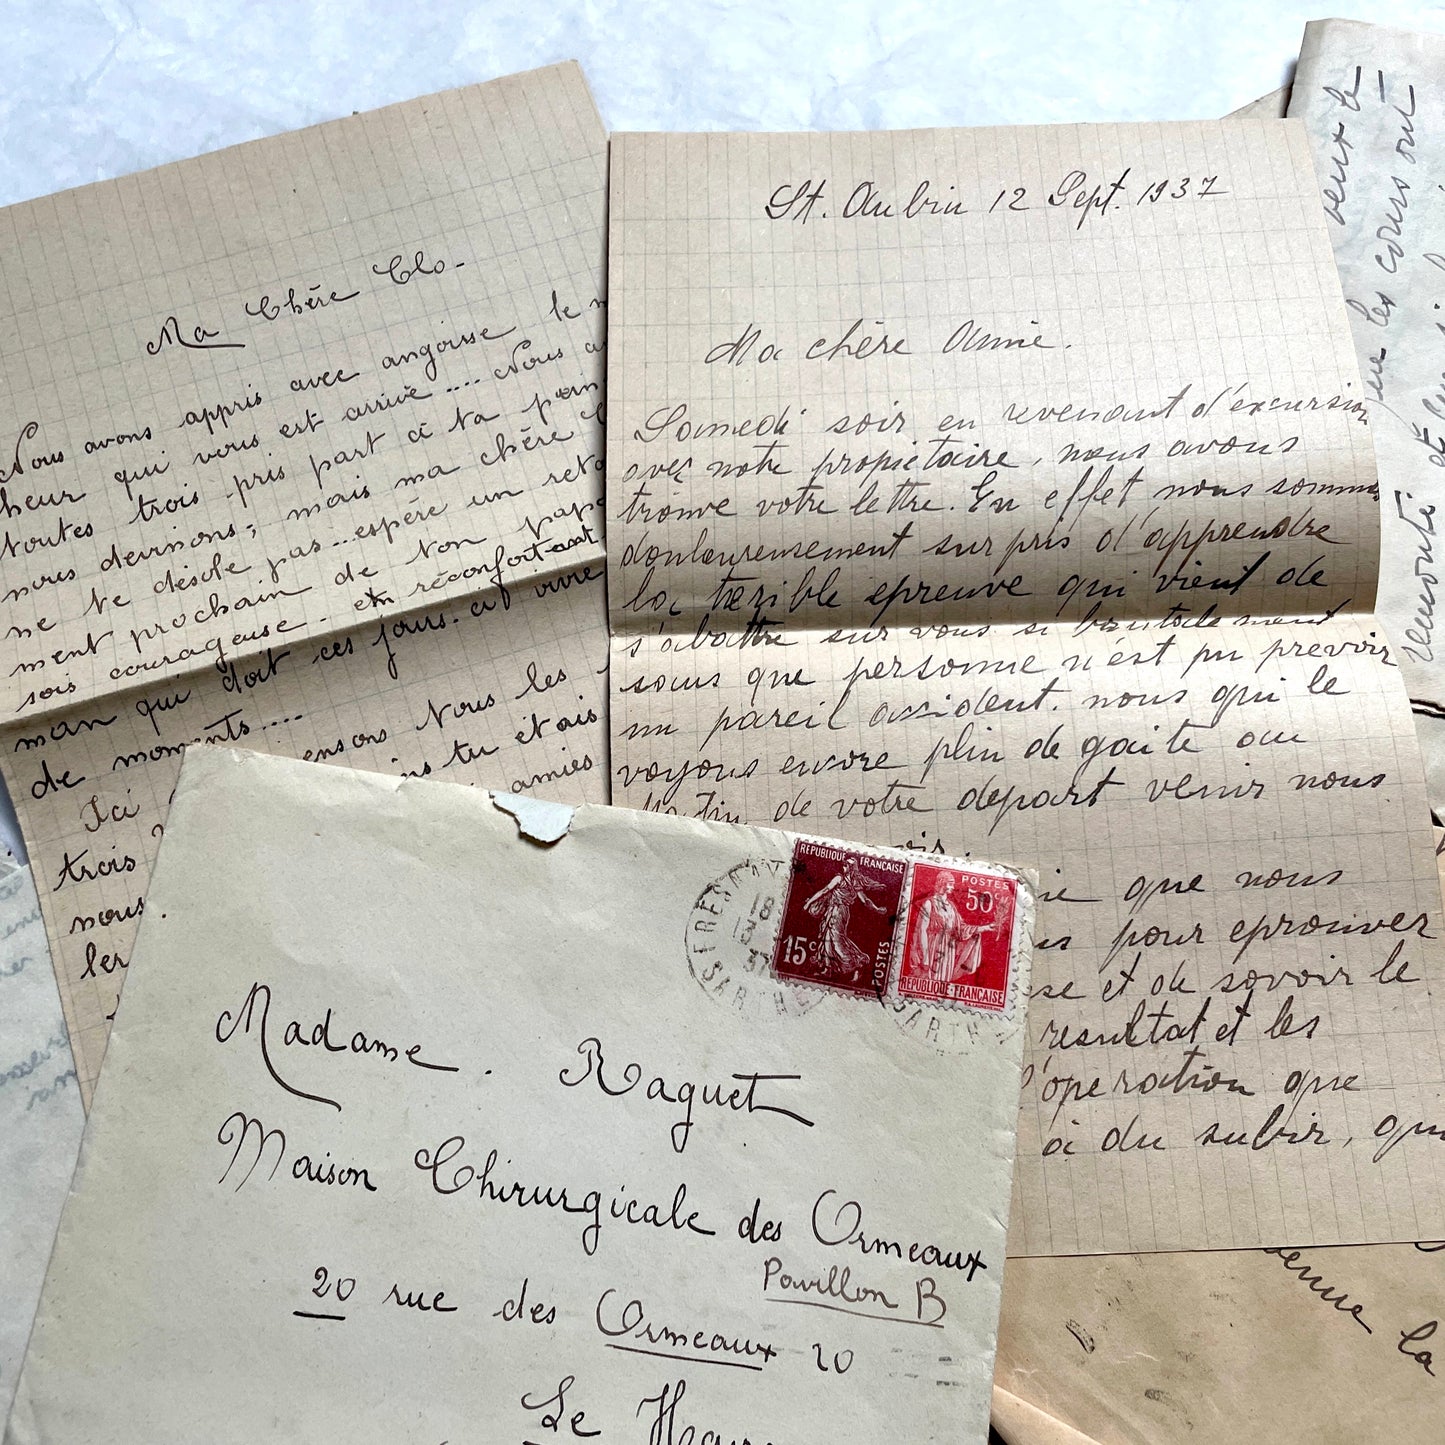 Ma Chère Clo-
Nous avons appris avec angoisse le
heur qui vous est arrivé .... Nous
toutes trois pris part à ta
nous devinons; mais ma chère
ne te désole pas...espère un
ment prochain de ton papa
sois courageuse. en réconfortant
man qui doit ces jours-ci vivre
de moments....
Ici pensons tous les
trois tu étais
nous amies
ler
St. Aubin 12 Sept. 1937
Ma chère Amie.
Samedi soir en revenant d'excursion
avec notre propietaire, nous avons
trouve votre lettre. En effet nous sommes
douloureusement surpris d'apprendre
la terible epreuve qui vient de
s'abattre sur vous si brutalement
sans que personne n'est pu prevoir
un pareil axident. nous qui le
voyons encore plin de gaite au
Matin de votre depart venir nous
que nous
pour eprouver
et de savoir le
resultat et les
l'operation que
à du subir, qui
veux le
que les cours ont
REPUBLIQUE FRANÇAISE
15c
POSTES
POSTES
50c
REPUBLIQUE FRANÇAISE
FRESNAY
18
13
37
SARTHE
SARTH
Madame. Raguet
Maison Chirurgicale des Ormeaux
Pavillon B
20 rue des Ormeaux 20
Le Havre
la